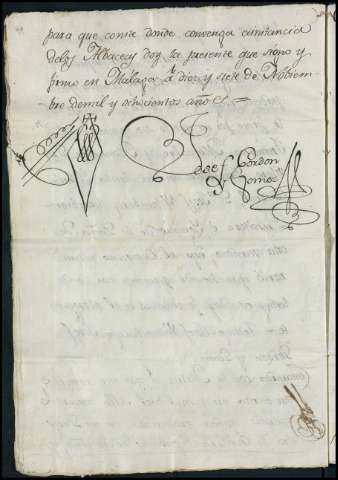 para que conste donde convenga a instancia
de los Albaceas doy la presente que signo y
firmo en Malaga à diez y siete de Nobiem-
bre de mil y ochocientos años
Josef Cordon
y Gomez